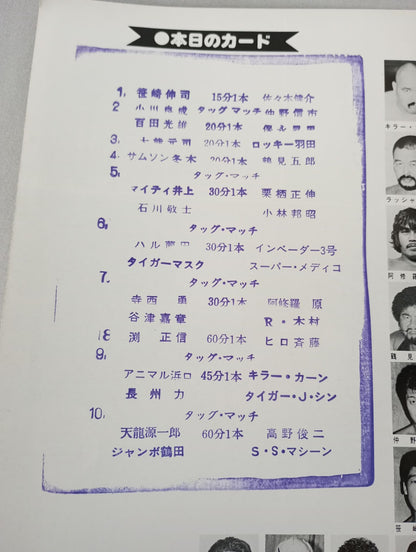 ●本日のカード
1. 笹崎伸司 15分1本 佐々木健介
2 小川良成 タッグマッチ 仲野信市
百田光雄 20分1本
3. 大熊元司 20分1本 ロッキー羽田
4. サムソン冬木 20分1本 鶴見五郎
5. タッグ・マッチ
マイティ井上 30分1本 栗栖正伸
石川敬士 小林邦昭
6. タッグ・マッチ
ハル薗田 30分1本 インベーダー3号
タイガーマスク スーパー・メディコ
7. タッグ・マッチ
寺西 勇 30分1本 阿修羅 原
谷津嘉章 R・木村
8 渕 正信 60分1本 ヒロ斉藤
9. タッグ・マッチ
アニマル浜口 45分1本 キラー・カーン
長州 力 タイガー・J・シン
10. タッグ・マッチ
天龍源一郎 60分1本 高野俊二
ジャンボ鶴田 S・S・マシーン
キラー・
ラッシャ
阿修羅
鶴見
仲野
笹崎